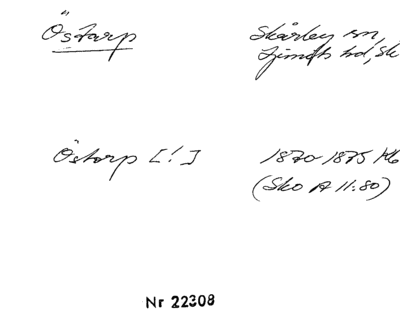 Östarp Skårby sn,
Ljunits hd, Sk
Östorp [!] 1870-1875 Hfl
(Sko A II:80)
Nr 22308